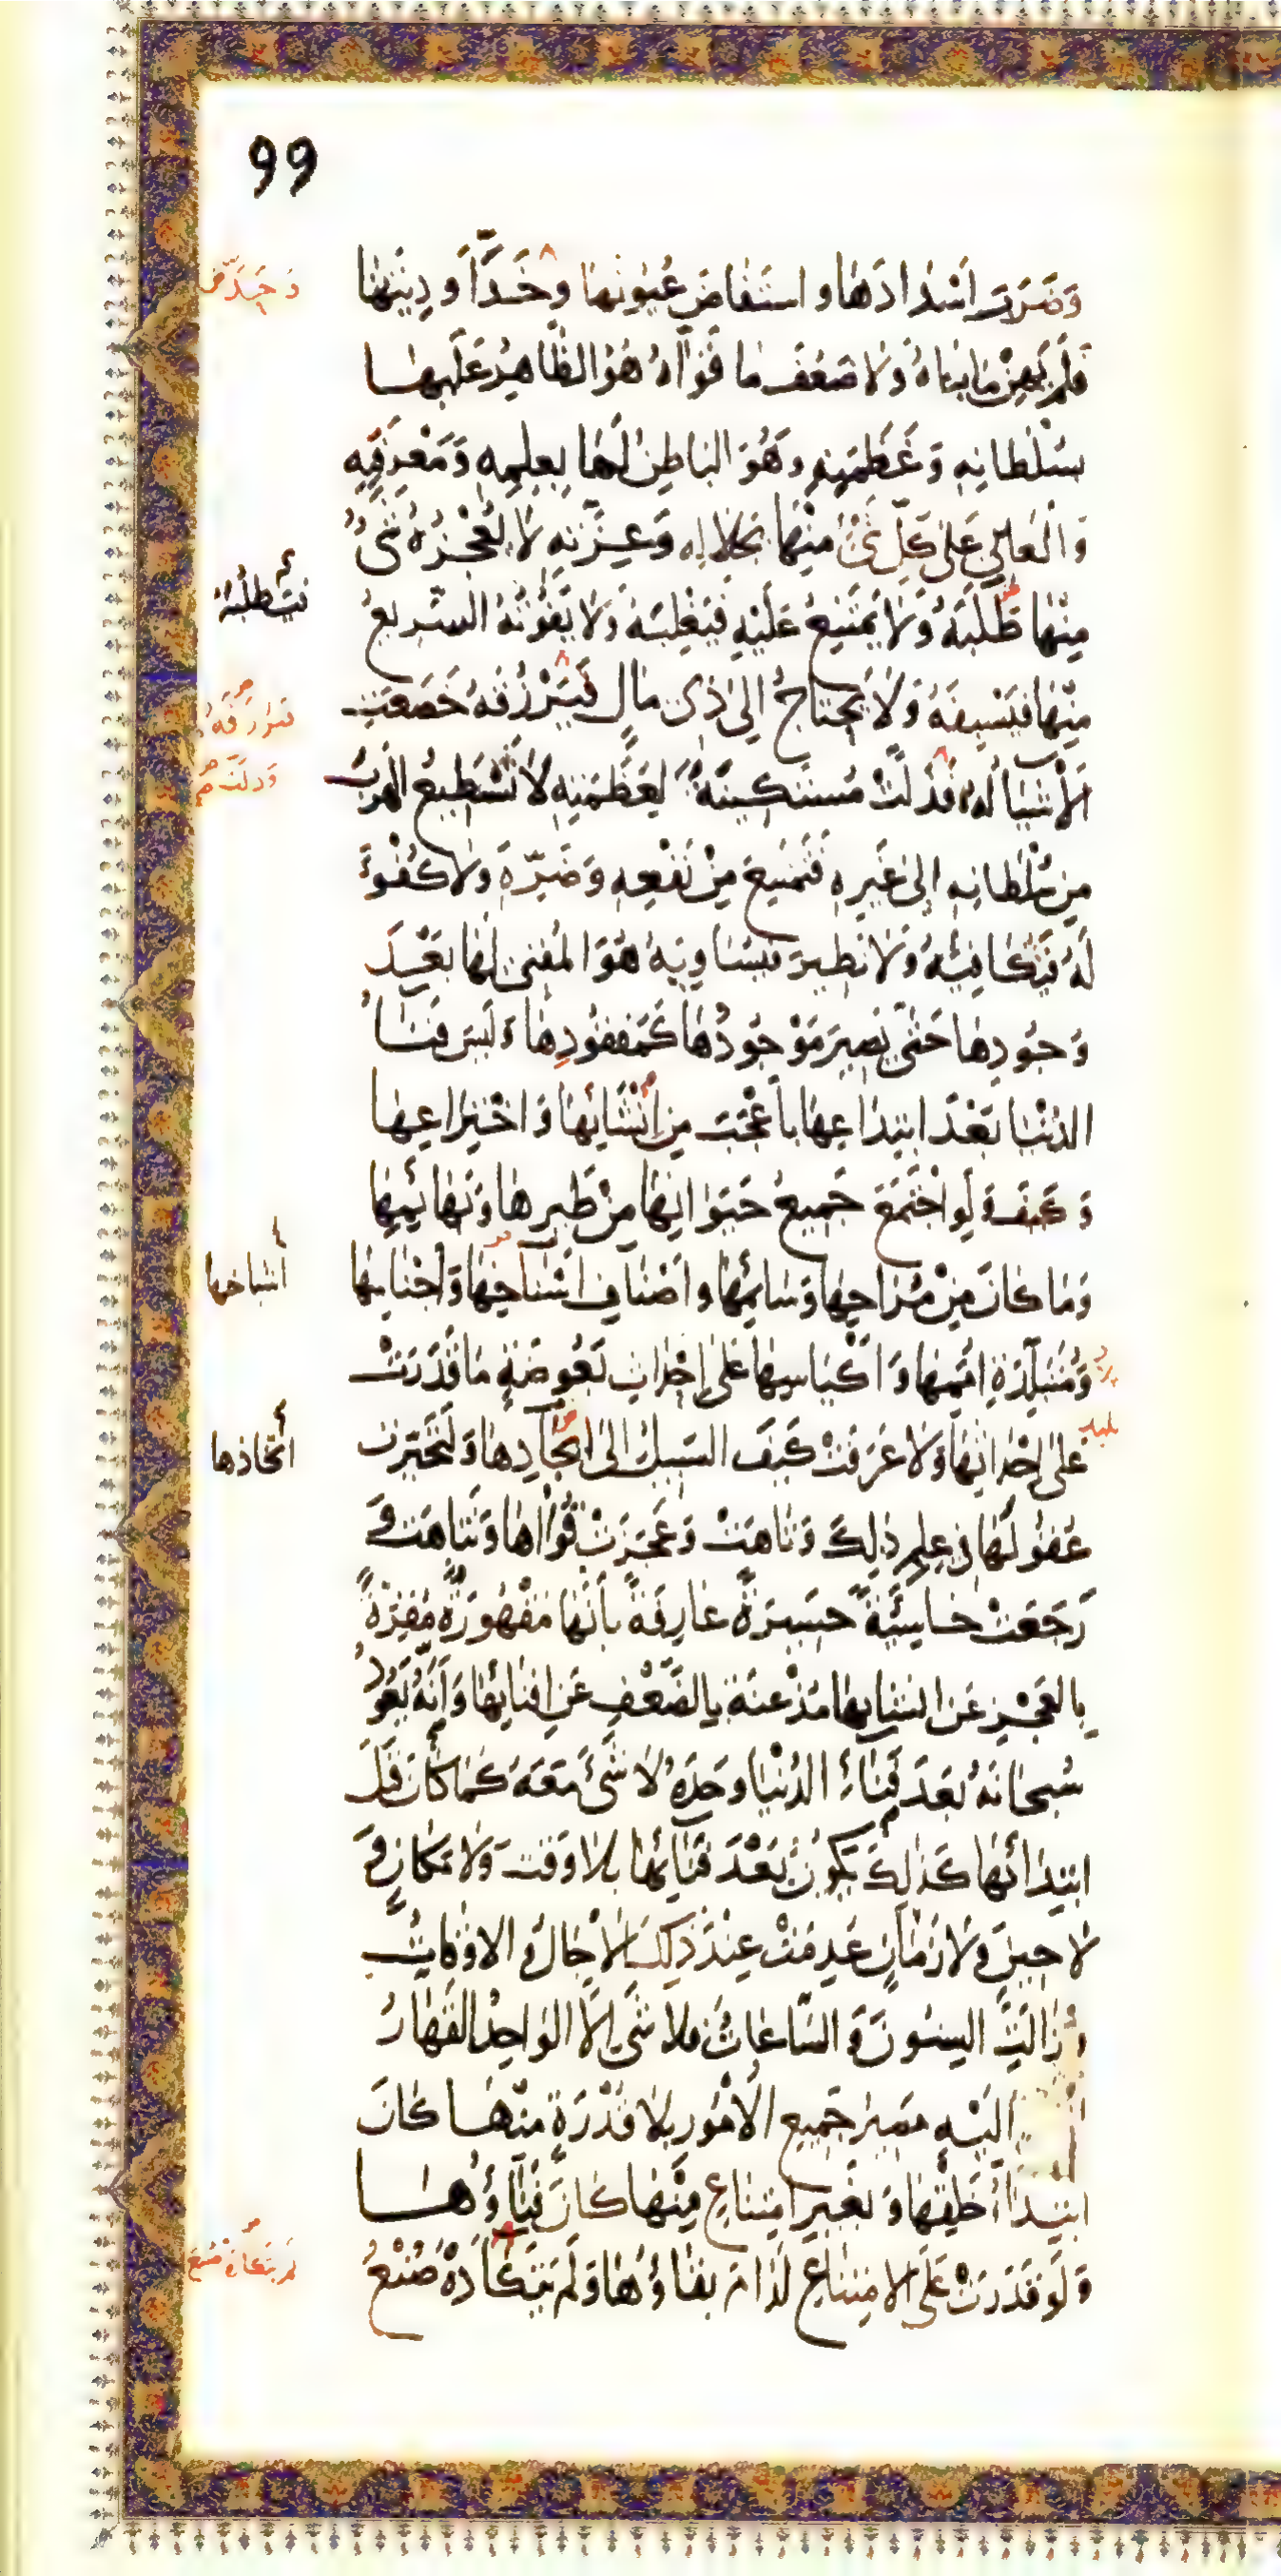 99
وَضَرَبَ اَسْدَادَهَا وَ اسْتَفَاضَ عُيُونَهَا وَخَدَّاَ وْدِيَتَهَا
وَخَدَّ
فَلَمْ يَهِنْ مَا بَنَاهُ وَلَا ضَعُفَ مَا قَوَّاهُ هُوَ الظَّاهِرُ عَلَيْهَا
بِسُلْطَانِهِ وَ عَظَمَتِهِ وَهُوَ الْبَاطِنُ لَهَا بِعِلْمِهِ وَمَعْرِفَتِهِ
وَ الْعَالِي عَلَى كُلِّ شَيْءٍ مِنْهَا بِجَلَالِهِ وَ عِزَّتِهِ لَا يُعْجِزُهُ شَيْءٌ
مِنْهَا طَلَبَهُ وَلَا يَمْتَنِعُ عَلَيْهِ فَيَغْلِبَهُ وَلَا يَفُوتُهُ السَّرِيعُ
مِنْهَا فَيَسْبِقَهُ وَلَا يَحْتَاجُ اِلَى ذِي مَالٍ فَيَرْزُقَهُ خَضَعَتِ
الْاَشْيَاءُ لَهُ فَذَلَّتْ مُسْتَكِينَةً لِعَظَمَتِهِ لَا تَسْتَطِيعُ الْهَرَبَ
وَذَلَّتْ
مِنْ سُلْطَانِهِ اِلَى غَيْرِهِ فَتَمْتَنِعَ مِنْ نَفْعِهِ وَضَرِّهِ وَلَا كُفْوءَ
لَهُ فَيُكَافِئَهُ وَلَا نَظِيرَ فَيُسَاوِيَهُ هُوَ الْمُفْنِي لَهَا بَعْدَ
وُجُودِهَا حَتَّى يَصِيرَ مَوْجُودُهَا كَمَفْقُودِهَا وَلَيْسَ فَنَاءُ
الدُّنْيَا بَعْدَ ابْتِدَاعِهَا بِاَعْجَبَ مِنْ اِنْشَائِهَا وَ اخْتِرَاعِهَا
وَ كَيْفَ وَلَوِ اجْتَمَعَ جَمِيعُ حَيَوَانِهَا مِنْ طَيْرِهَا وَبَهَائِمِهَا
وَمَا كَانَ مِنْ مُرَاحِهَا وَسَائِمِهَا وَ اَصْنَافِ اَسْنَاخِهَا وَ اَجْنَاسِهَا
اشباخها
وَمُتَبَلِّدَةِ اُمَمِهَا وَ اَكْيَاسِهَا عَلَى اِحْدَاثِ بَعُوضَةٍ مَا قَدَرَتْ
عَلَى اِحْدَاثِهَا وَلَا عَرَفَتْ كَيْفَ السَّبِيلُ اِلَى اِيجَادِهَا وَلَتَحَيَّرَتْ
اتخاذها
عُقُولُهَا فِي عِلْمِ ذَلِكَ وَتَاهَتْ وَ عَجَزَتْ قُوَاهَا وَ تَنَاهَتْ وَ
رَجَعَتْ خَاسِئَةً حَسِيرَةً عَارِفَةً بِاَنَّهَا مَقْهُورَةٌ مُقِرَّةً
بِالْعَجْزِ عَنْ اِنْشَائِهَا مُذْعِنَةً بِالضَّعْفِ عَنْ اِفْنَائِهَا وَ اَنَّهُ يَعُودُ
سُبْحَانَهُ بَعْدَ فَنَاءِ الدُّنْيَا وَحْدَهُ لَا شَيْءَ مَعَهُ كَمَا كَانَ قَبْلَ
ابْتِدَائِهَا كَذَلِكَ يَكُونُ بَعْدَ فَنَائِهَا بِلَا وَقْتٍ وَلَا مَكَانٍ وَ
لَا حِينٍ وَلَا زَمَانٍ عُدِمَتْ عِنْدَ ذَلِكَ الْاٰجَالُ وَ الْاَوْقَاتُ
وَ زَالَتِ السِّنُونَ وَ السَّاعَاتُ فَلَا شَيْءَ اِلَّا الْوَاحِدُ الْقَهَّارُ
اِلَيْهِ مَصِيرُ جَمِيعِ الْاُمُورِ بِلَا قُدْرَةٍ مِنْهَا كَانَ
ابْتِدَاءُ خَلْقِهَا وَ بِغَيْرِ امْتِنَاعٍ مِنْهَا كَانَ فَنَاؤُهَا
وَ لَوْ قَدَرَتْ عَلَى الْاِمْتِنَاعِ لَدَامَ بَقَاؤُهَا وَلَمْ يَتَكَأَّدْهُ صُنْعُ